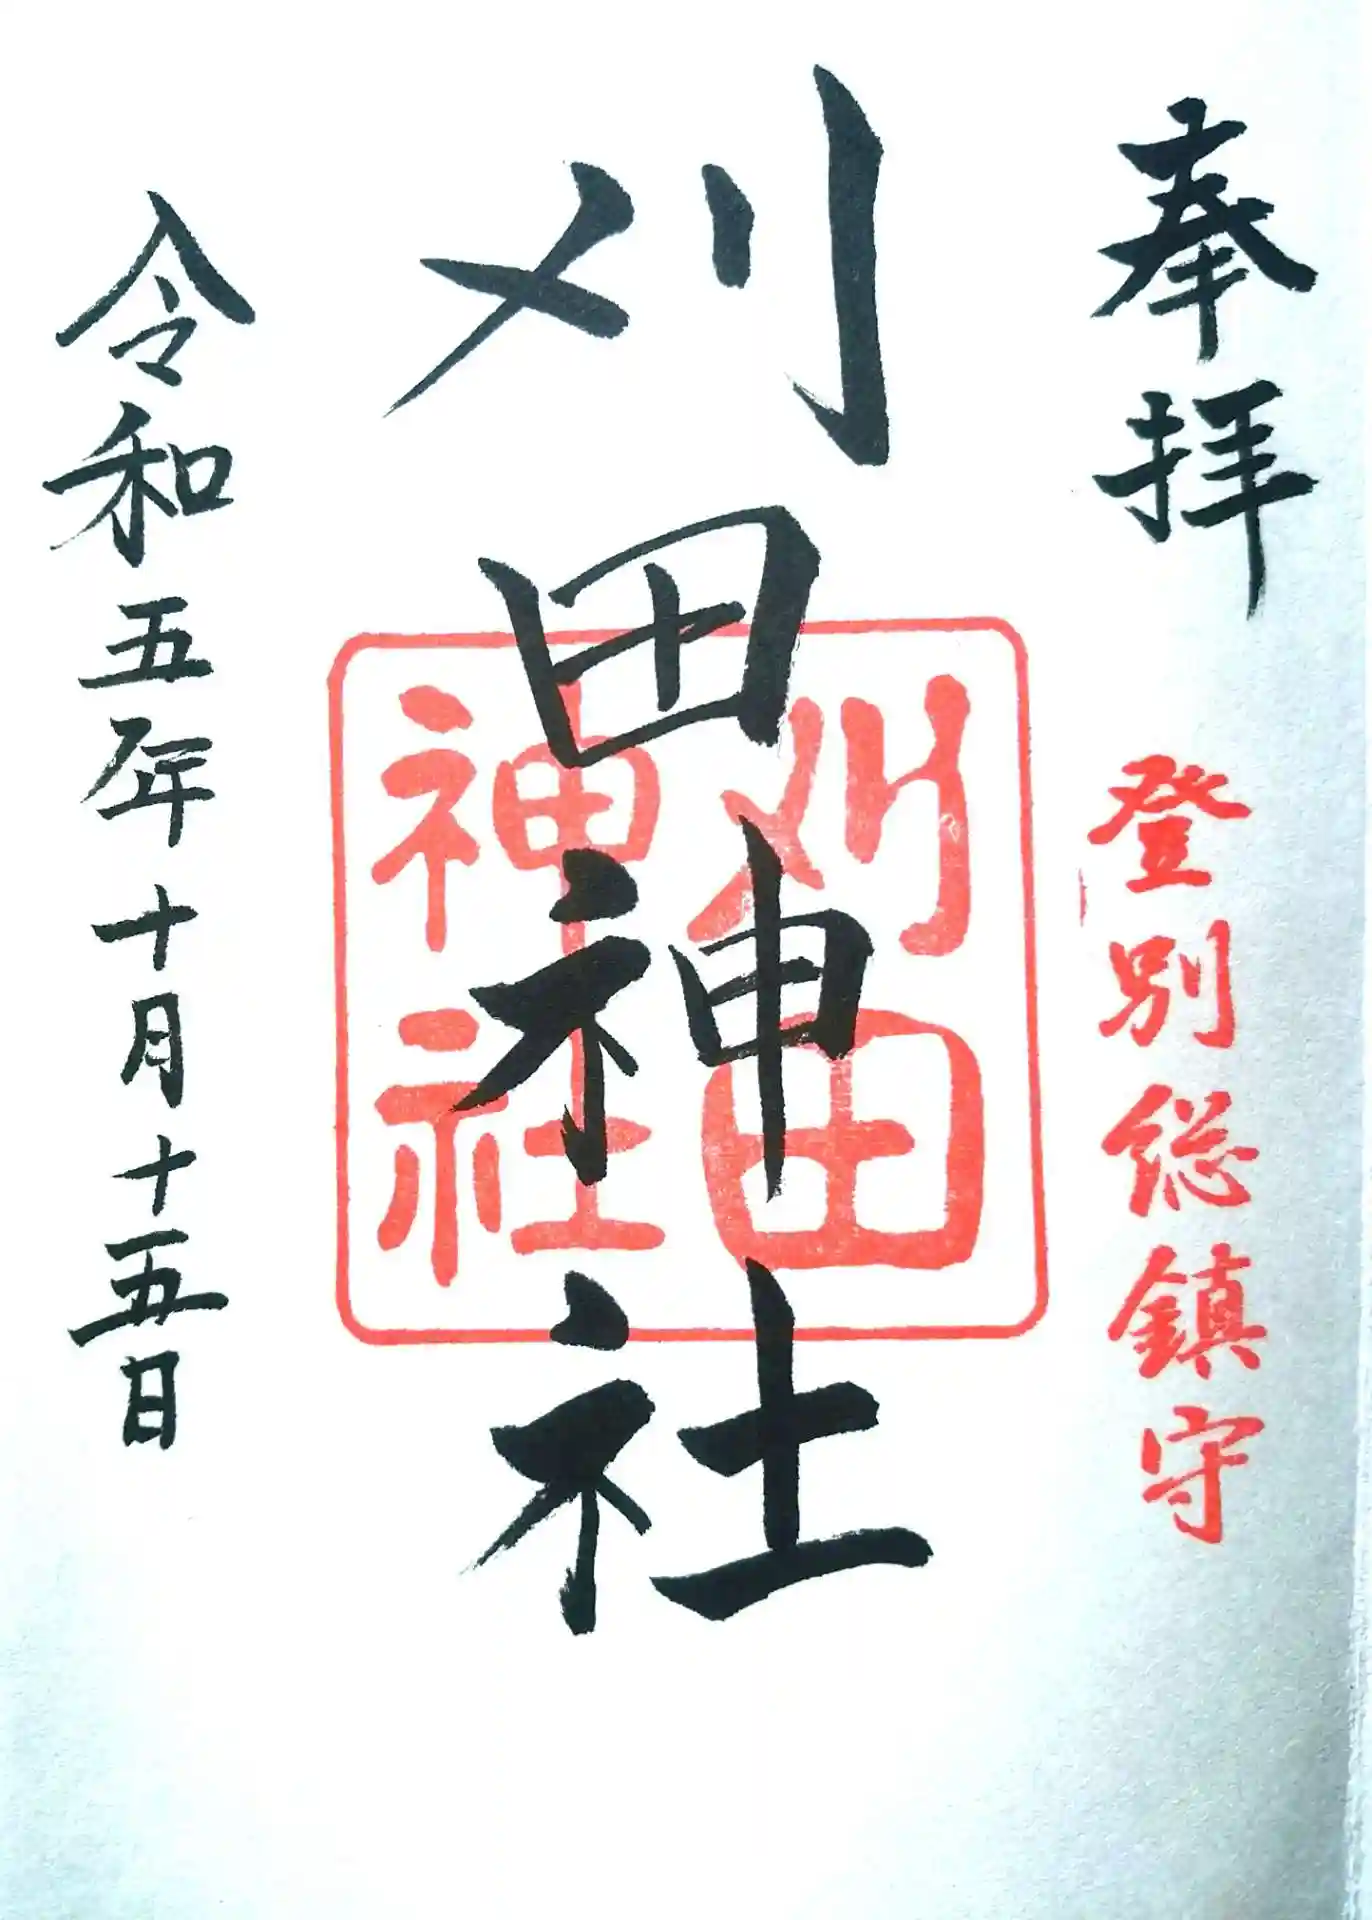 奉拝
登別総鎮守
刈田神社
刈田
神社
令和五年十月十五日